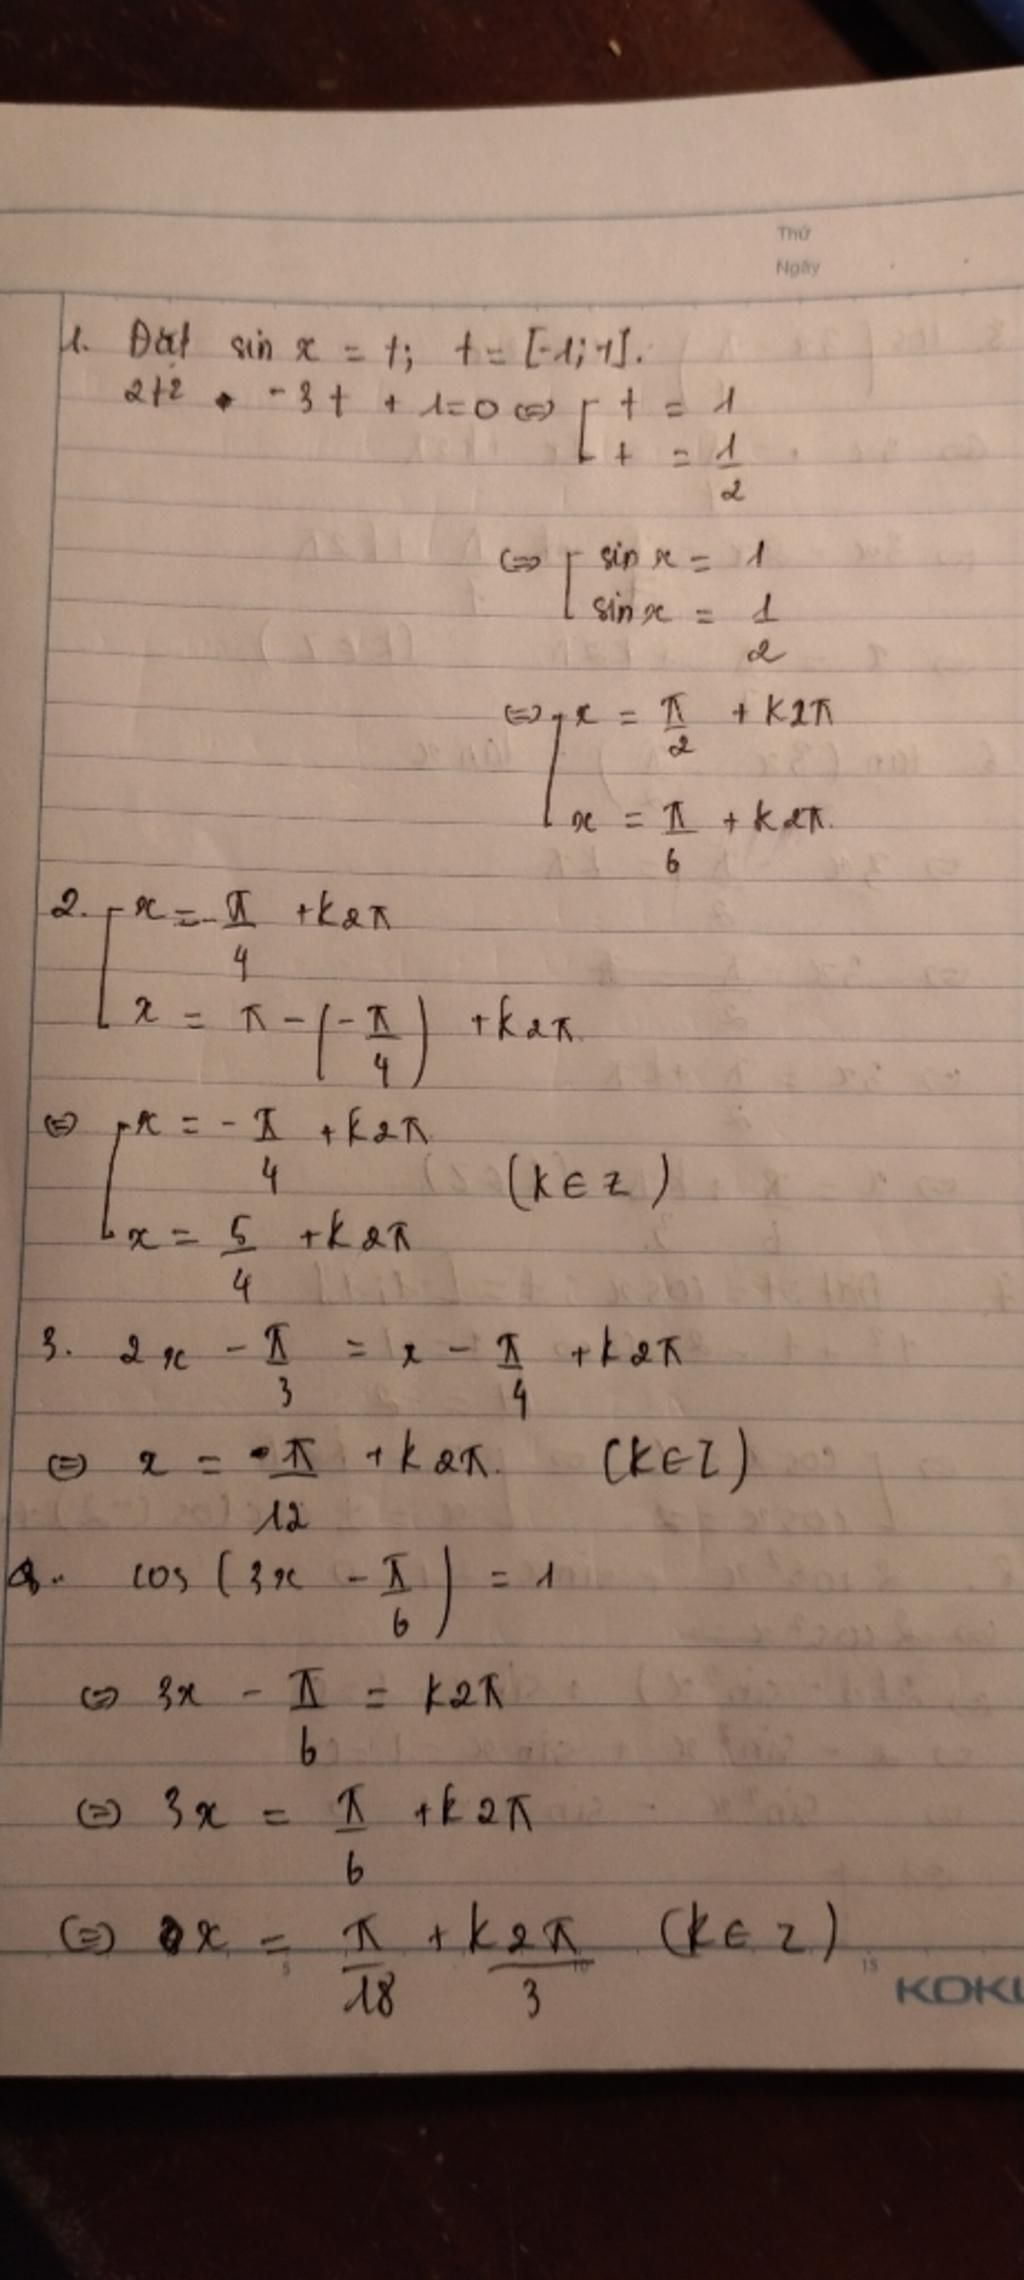 Thứ
Ngày
1. Đặt sin x = t; t = [-1;1].
2t2 - 3t + 1=0 ⇔ [ t = 1
t = 1/2
⇔ [ sin x = 1
sin x = 1/2
⇔ [ x = π/2 + k2π
x = π/6 + k2π.
2. [ x = -π/4 + k2π
x = π - (-π/4) + k2π.
⇔ [ x = -π/4 + k2π
(k ∈ z)
x = 5/4 + k2π
3. 2x - π/3 = x - π/4 + k2π
⇔ x = π/12 + k2π. (k ∈ Z)
cos (3x - π/6) = 1
⇔ 3x - π/6 = k2π
⇔ 3x = π/6 + k2π
⇔ x = π/18 + k2π/3 (k ∈ z)
5 10 15